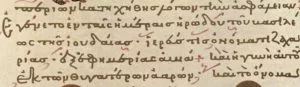 ὧν κατηχήθης λόγων τὴν ἀσφάλειαν
Ἐγένετο ἐν ταῖς ἡμέραις ἡρώδου τοῦ βασιλέ
ως τῆς ἰουδαίας· ἱερεύς τις ὀνόματι ζαχα
ρίας· ἐξ ἐφημερίας ἀβιά· καὶ ἡ γυνὴ αὐτοῦ
ἐκ τῶν θυγατέρων ἀαρών· καὶ τὸ ὄνομα